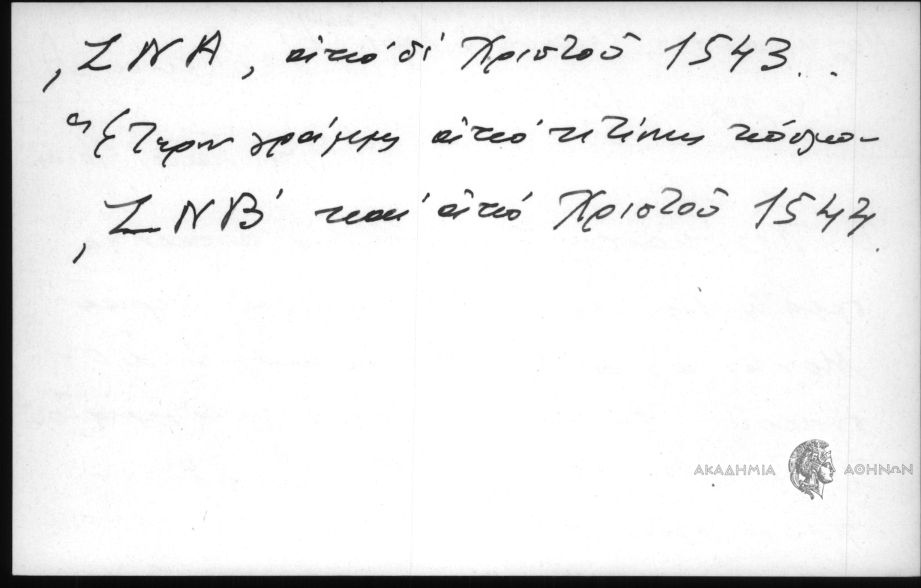 ͵ΖΝΑ, ἀπὸ δὲ Χριστοῦ 1543...
Ἑτέρα γράμμη ἀπὸ κτίσεως κόσμο-
͵ΖΝΒ´ καὶ ἀπὸ Χριστοῦ 1544.
ΑΚΑΔΗΜΙΑ ΑΘΗΝΩΝ